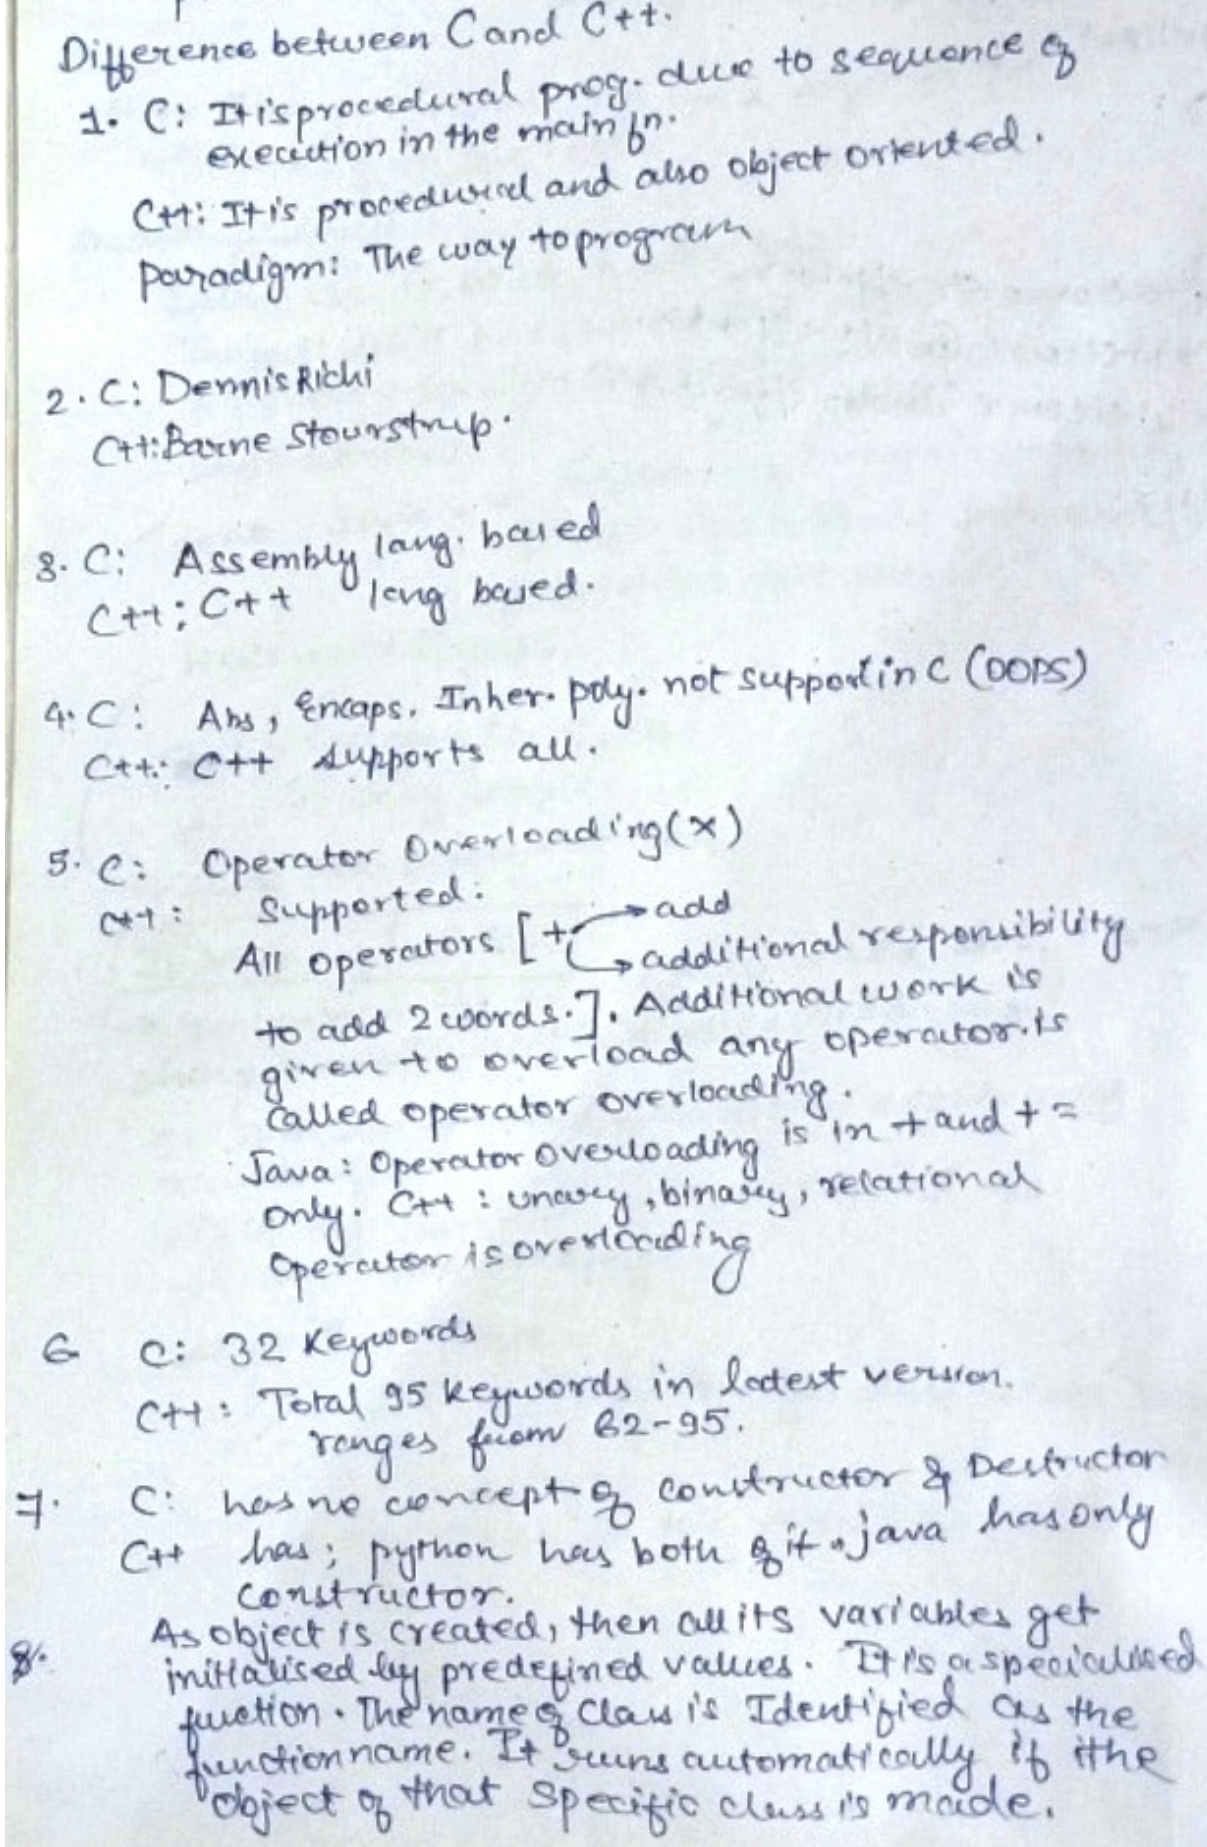 Difference between C and C++.
1. C: It is procedural prog. due to sequence of
execution in the main fn.
C++: It is procedural and also object oriented.
paradigm: The way to program
2. C: Dennis Richi
C++: Barne Stourstrup.
3. C: Assembly lang. based
C++: C++ lang based.
4. C: Abs, Encaps. Inher. poly. not support in C (OOPS)
C++: C++ supports all.
5. C: Operator Overloading (x)
C++: Supported.
All operators [+ → add
→ additional responsibility
to add 2 words.]. Additional work is
given to overload any operator.is
called operator overloading.
Java: Operator overloading is in + and +=
only. C++: unary, binary, relational
Operator is overloading
6 C: 32 Keywords
C++: Total 95 keywords in latest version.
ranges from 62-95.
7. C: has no concept of constructor & Destructor
C++ has; python has both of it. java has only
constructor.
8. As object is created, then all its variables get
initialised by predefined values. It is a specialised
function. The name of Class is Identified as the
function name. It runs automatically if the
object of that specific class is made.